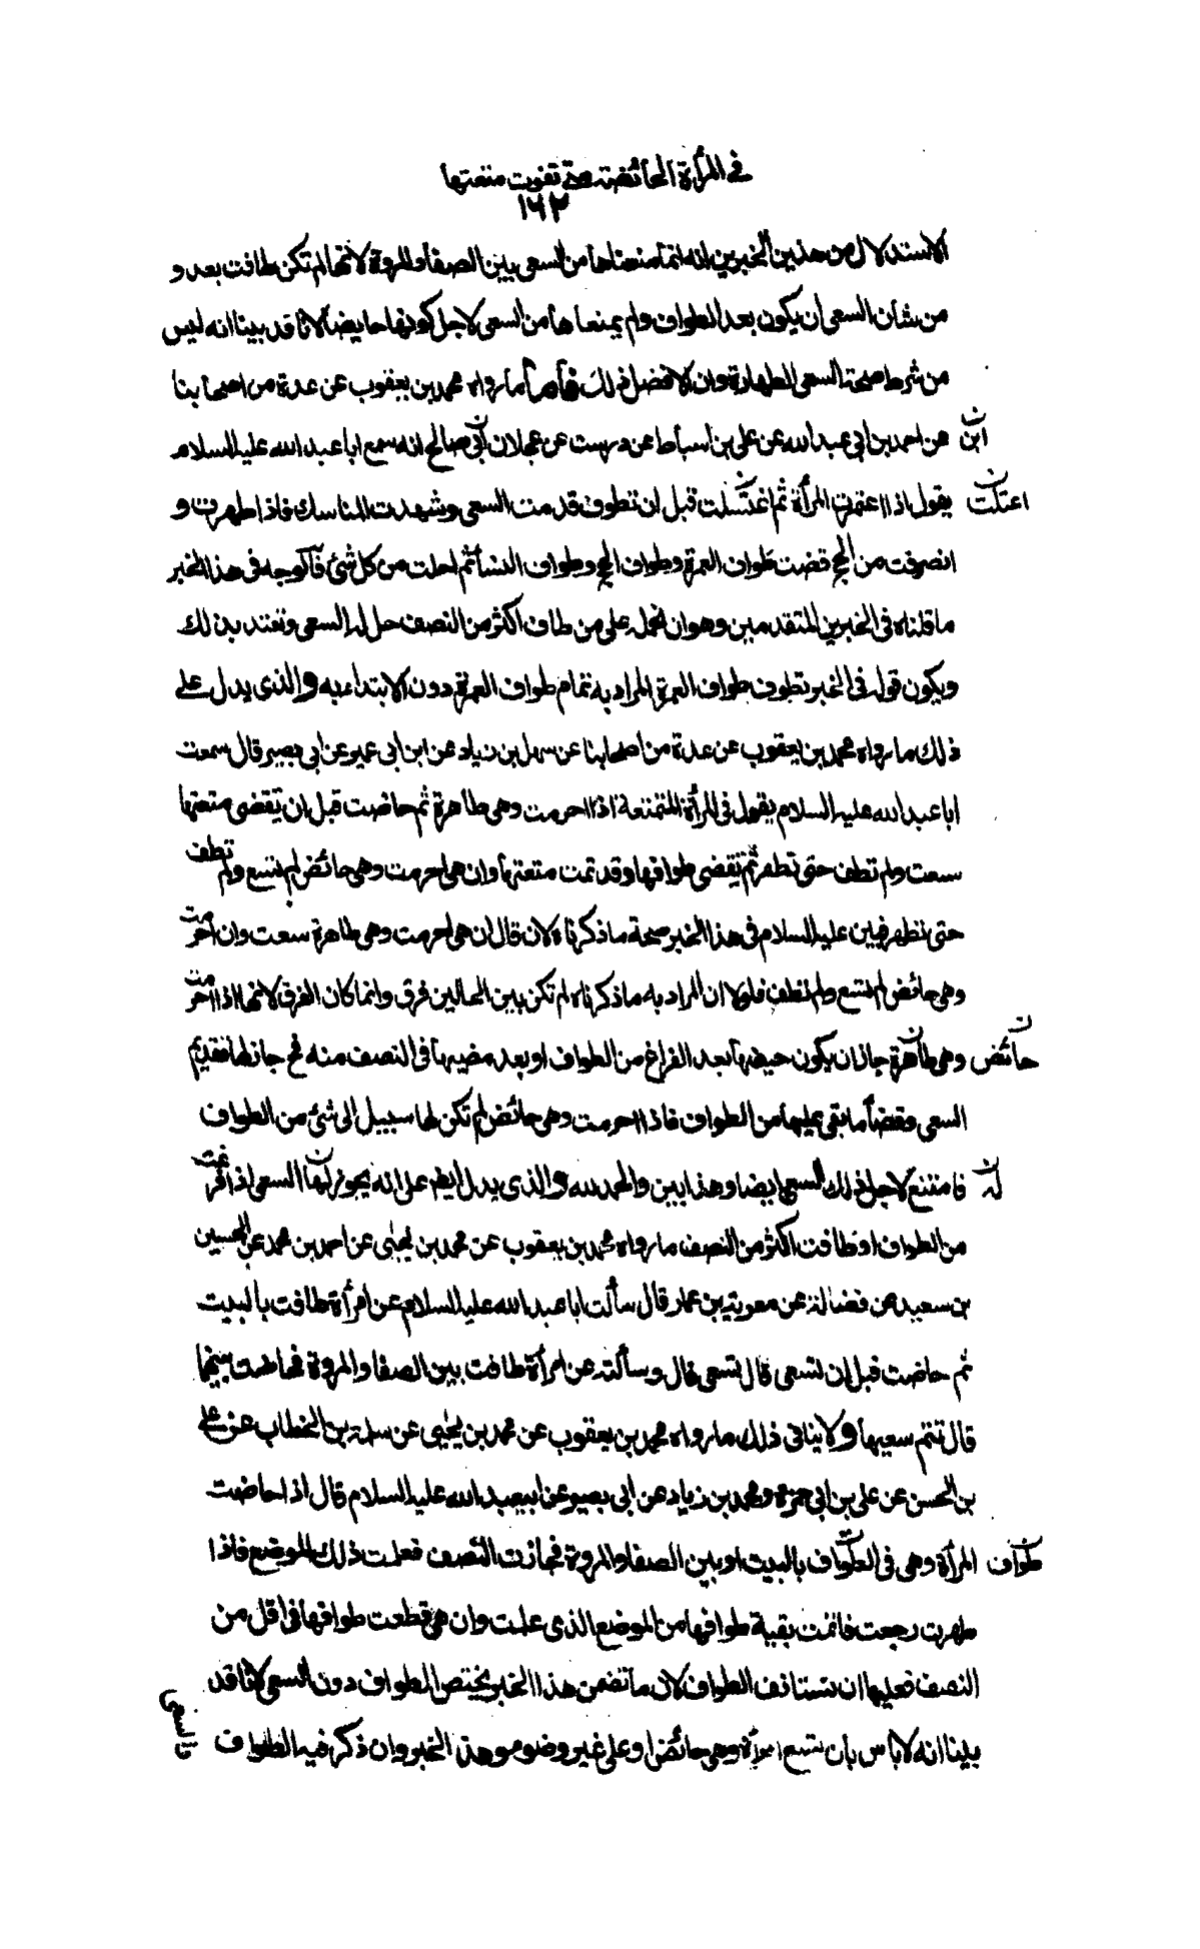 في المرأة الحائضة متى تفوت متعتها
١٦٢
الاستدلال من هذين الخبرين انه انما منعناها من السعي بين الصفا والمروة لانها لم تكن طافت بعد و
من شأن السعي ان يكون بعد الطواف ولم يمنعاها من السعي لاجل كونها حايضاً لانا قد بينا انه ليس
من شرط صحة السعي الطهارة وان الافضل ذلك فأما ما رواه محمد بن يعقوب عن عدة من اصحابنا
عن احمد بن ابي عبد الله عن علي بن اسباط عن درست عن عجلان ابي صالح انه سمع ابا عبد الله عليه السلام ابن
يقول اذا اعتمرت المرأة ثم اغتسلت قبل ان تطوف قدمت السعي وشهدت المناسك فاذا طهرت و اعتلت
انصرفت من الحج قضت طواف العمرة وطواف الحج وطواف النساء ثم احلت من كل شئ فالوجه في هذا الخبر
ما قلناه في الخبرين المتقدمين وهو ان نحمله على من طاف اكثر من النصف حل له السعي وتعتد بذلك
ويكون قوله في الخبر تطوف طواف العمرة المراد به تمام طواف العمرة دون الابتداء به والذي يدل على
ذلك ما رواه محمد بن يعقوب عن عدة من اصحابنا عن سهل بن زياد عن ابن ابي عمير عن ابي بصير قال سمعت
ابا عبد الله عليه السلام يقول في المرأة المتمتعة اذا احرمت وهي طاهرة ثم حاضت قبل ان تقضى متعتها
سعت ولم تطف حتى تطهر ثم تقضى طوافها وقد تمت متعتها وان هي احرمت وهي حائض لم تسع ولم تطف
حتى تطهر فبين عليه السلام في هذا الخبر صحة ما ذكرناه لان قال ان هي احرمت وهي طاهرة سعت وان احرمت
وهي حائض لم تسع ولم تطف فلولا ان المراد به ما ذكرناه لم تكن بين الحالين فرق وانما كان الفرق لانها اذا احرمت
وهي طاهرة جاز ان يكون حيضها بعد الفراغ من الطواف او بعد مضيها في النصف منه فح جاز لها تقديم حائض
السعي وقضأ ما بقي عليها من الطواف فاذا احرمت وهي حائض لم تكن لها سبيل الى شئ من الطواف
فامتنع لاجل ذلك السعي ايضا وهذا بين والحمد لله والذي يدل ايضا على انه يجوز لها السعي اذا فرغت له
من الطواف او طافت اكثر من النصف ما رواه محمد بن يعقوب عن محمد بن يحيى عن احمد بن محمد عن الحسين
بن سعيد عن فضالة عن معوية بن عمار قال سألت ابا عبد الله عليه السلام عن امرأة طافت بالبيت
ثم حاضت قبل ان تسعى قال تسعى قال وسألته عن امرأة طافت بين الصفا والمروة فحاضت بينهما
قال تتم سعيها ولا ينافى ذلك ما رواه محمد بن يعقوب عن محمد بن يحيى عن سلمة بن الخطاب عن علي
بن الحسن عن علي بن ابي حمزة ومحمد بن زياد عن ابي بصير عن ابيعبد الله عليه السلام قال اذا حاضت
المرأة وهي في الطواف بالبيت او بين الصفا والمروة فجازت النصف فعلمت ذلك الموضع فاذا طواف
طهرت رجعت فاتمت بقية طوافها من الموضع الذي علمت وان هي قطعت طوافها في اقل من
النصف فعليها ان تستانف الطواف لان ما تضمن هذا الخبر يختص الطواف دون السعي لانا قد
بينا انه لا باس بان تسع المرأة وهي حائض او على غير وضوء وهذا الخبر وان ذكر فيه الطواف